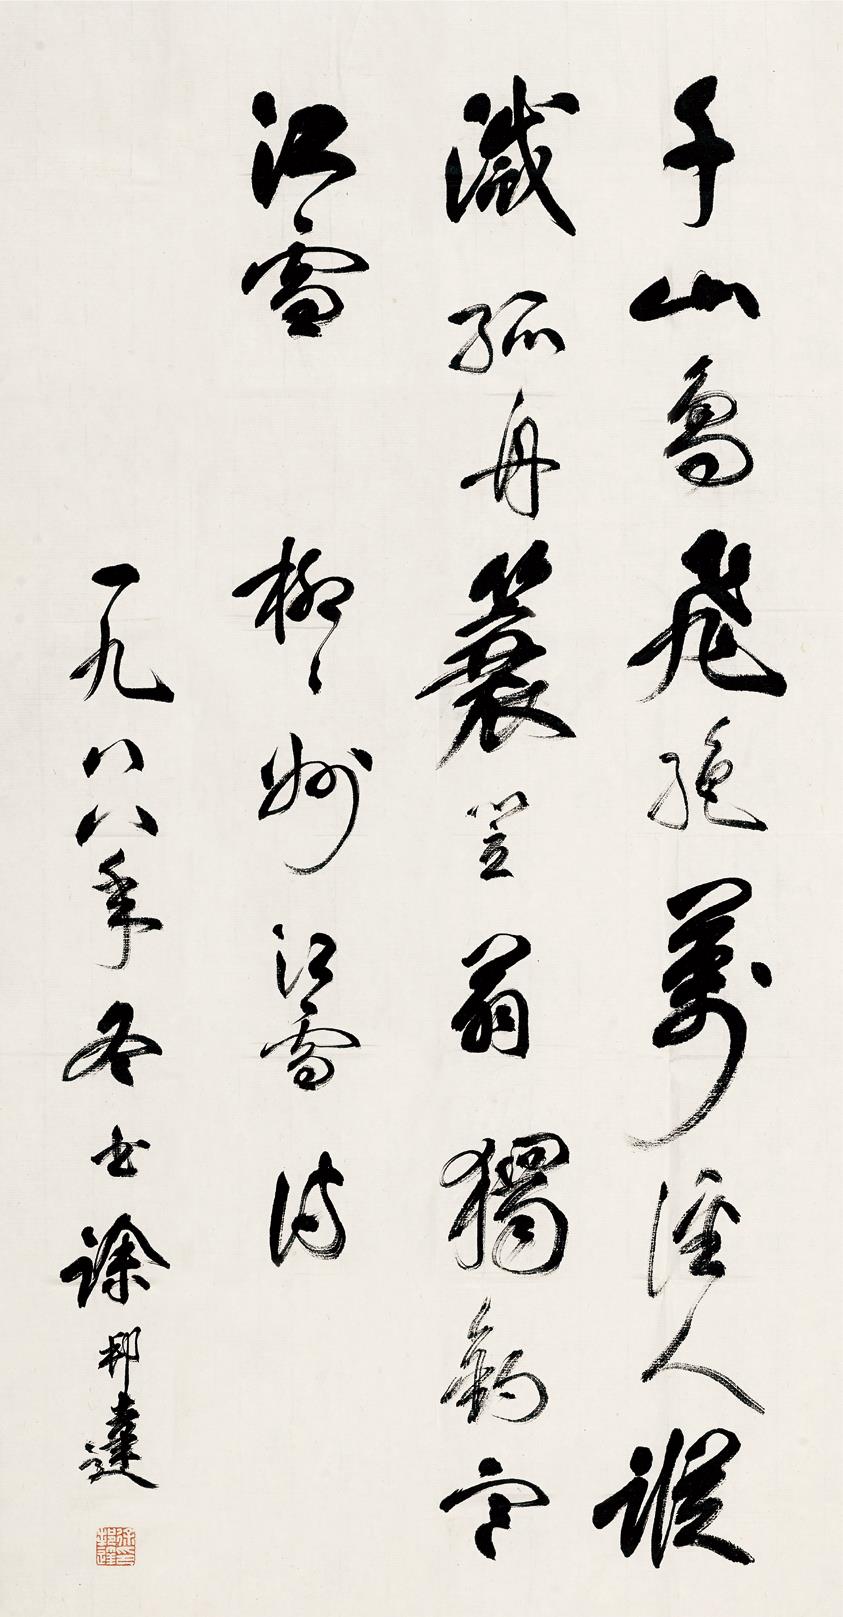 千山鳥飛絕萬徑人蹤
滅孤舟簑笠翁獨釣寒
江雪 柳〻州江雪詩
一九八八年冬書徐邦達